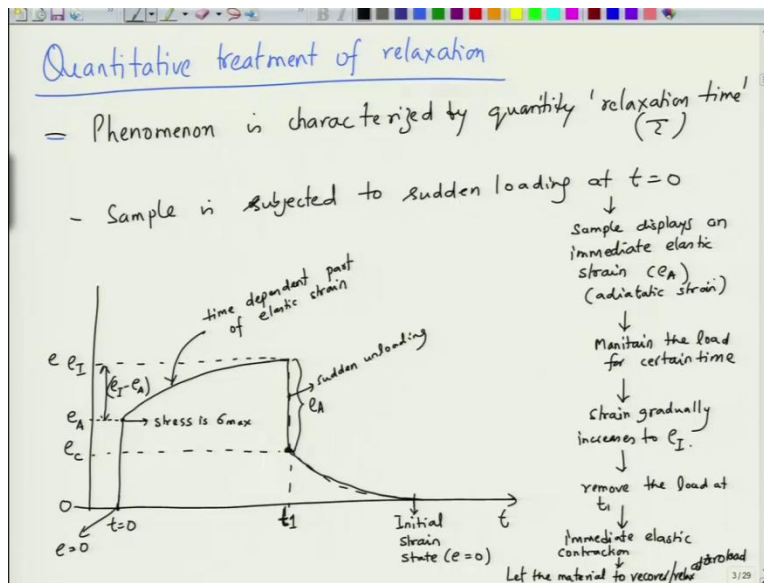 Quantitative treatment of relaxation
= Phenomenon is characterized by quantity 'relaxation time'
(τ)
- Sample is subjected to sudden loading at t=0
Sample displays an
immediate elastic
strain (e_A)
(adiatatic strain)
Manitain the load
for certain time
Strain gradually
increases to e_I.
remove the load at
t1
immediate elastic
contraction
Let the material to recover/relax at zero load
time dependent part
of elastic strain
e
e_I
(e_I-e_A)
sudden unloading
e_A
e_A
stress is σmax
e_c
0
e=0
t=0
t1
Initial
strain
state (e=0)
t
3/29